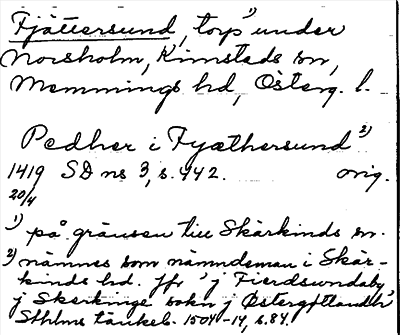 Fjättersund, torp¹⁾ under
Norsholm, Kimstads sn,
Memmings hd, Österg. l.
Pedher i Fyæthersund ²⁾
1419 SD ns 3, s. 442. orig.
20/4
1) på gränsen till Skärkinds sn.
2) nämnes som nämndeman i Skär-
kinds hd. Jfr "j Fierdsundaby
j Skerkinge sokn j Østergøtlandh"
Sthlms tänkeb. 1504-14, s. 84.